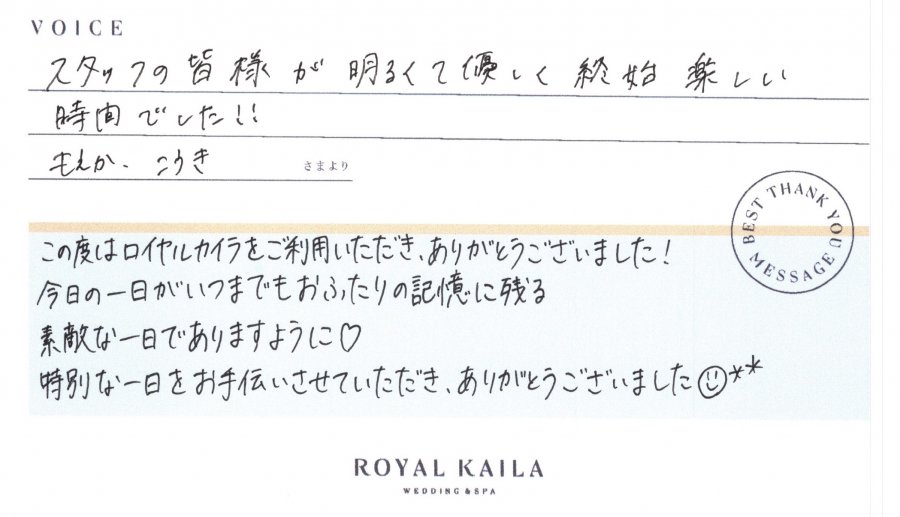 VOICE
スタッフの皆様が明るくて優しく終始楽しい
時間でした!!
もえか、こうき さまより
BEST THANK YOU MESSAGE
この度はロイヤルカイラをご利用いただき、ありがとうございました!
今日の一日がいつまでもおふたりの記憶に残る
素敵な一日でありますように♡
特別な一日をお手伝いさせていただき、ありがとうございました☺**
ROYAL KAILA
WEDDING & SPA